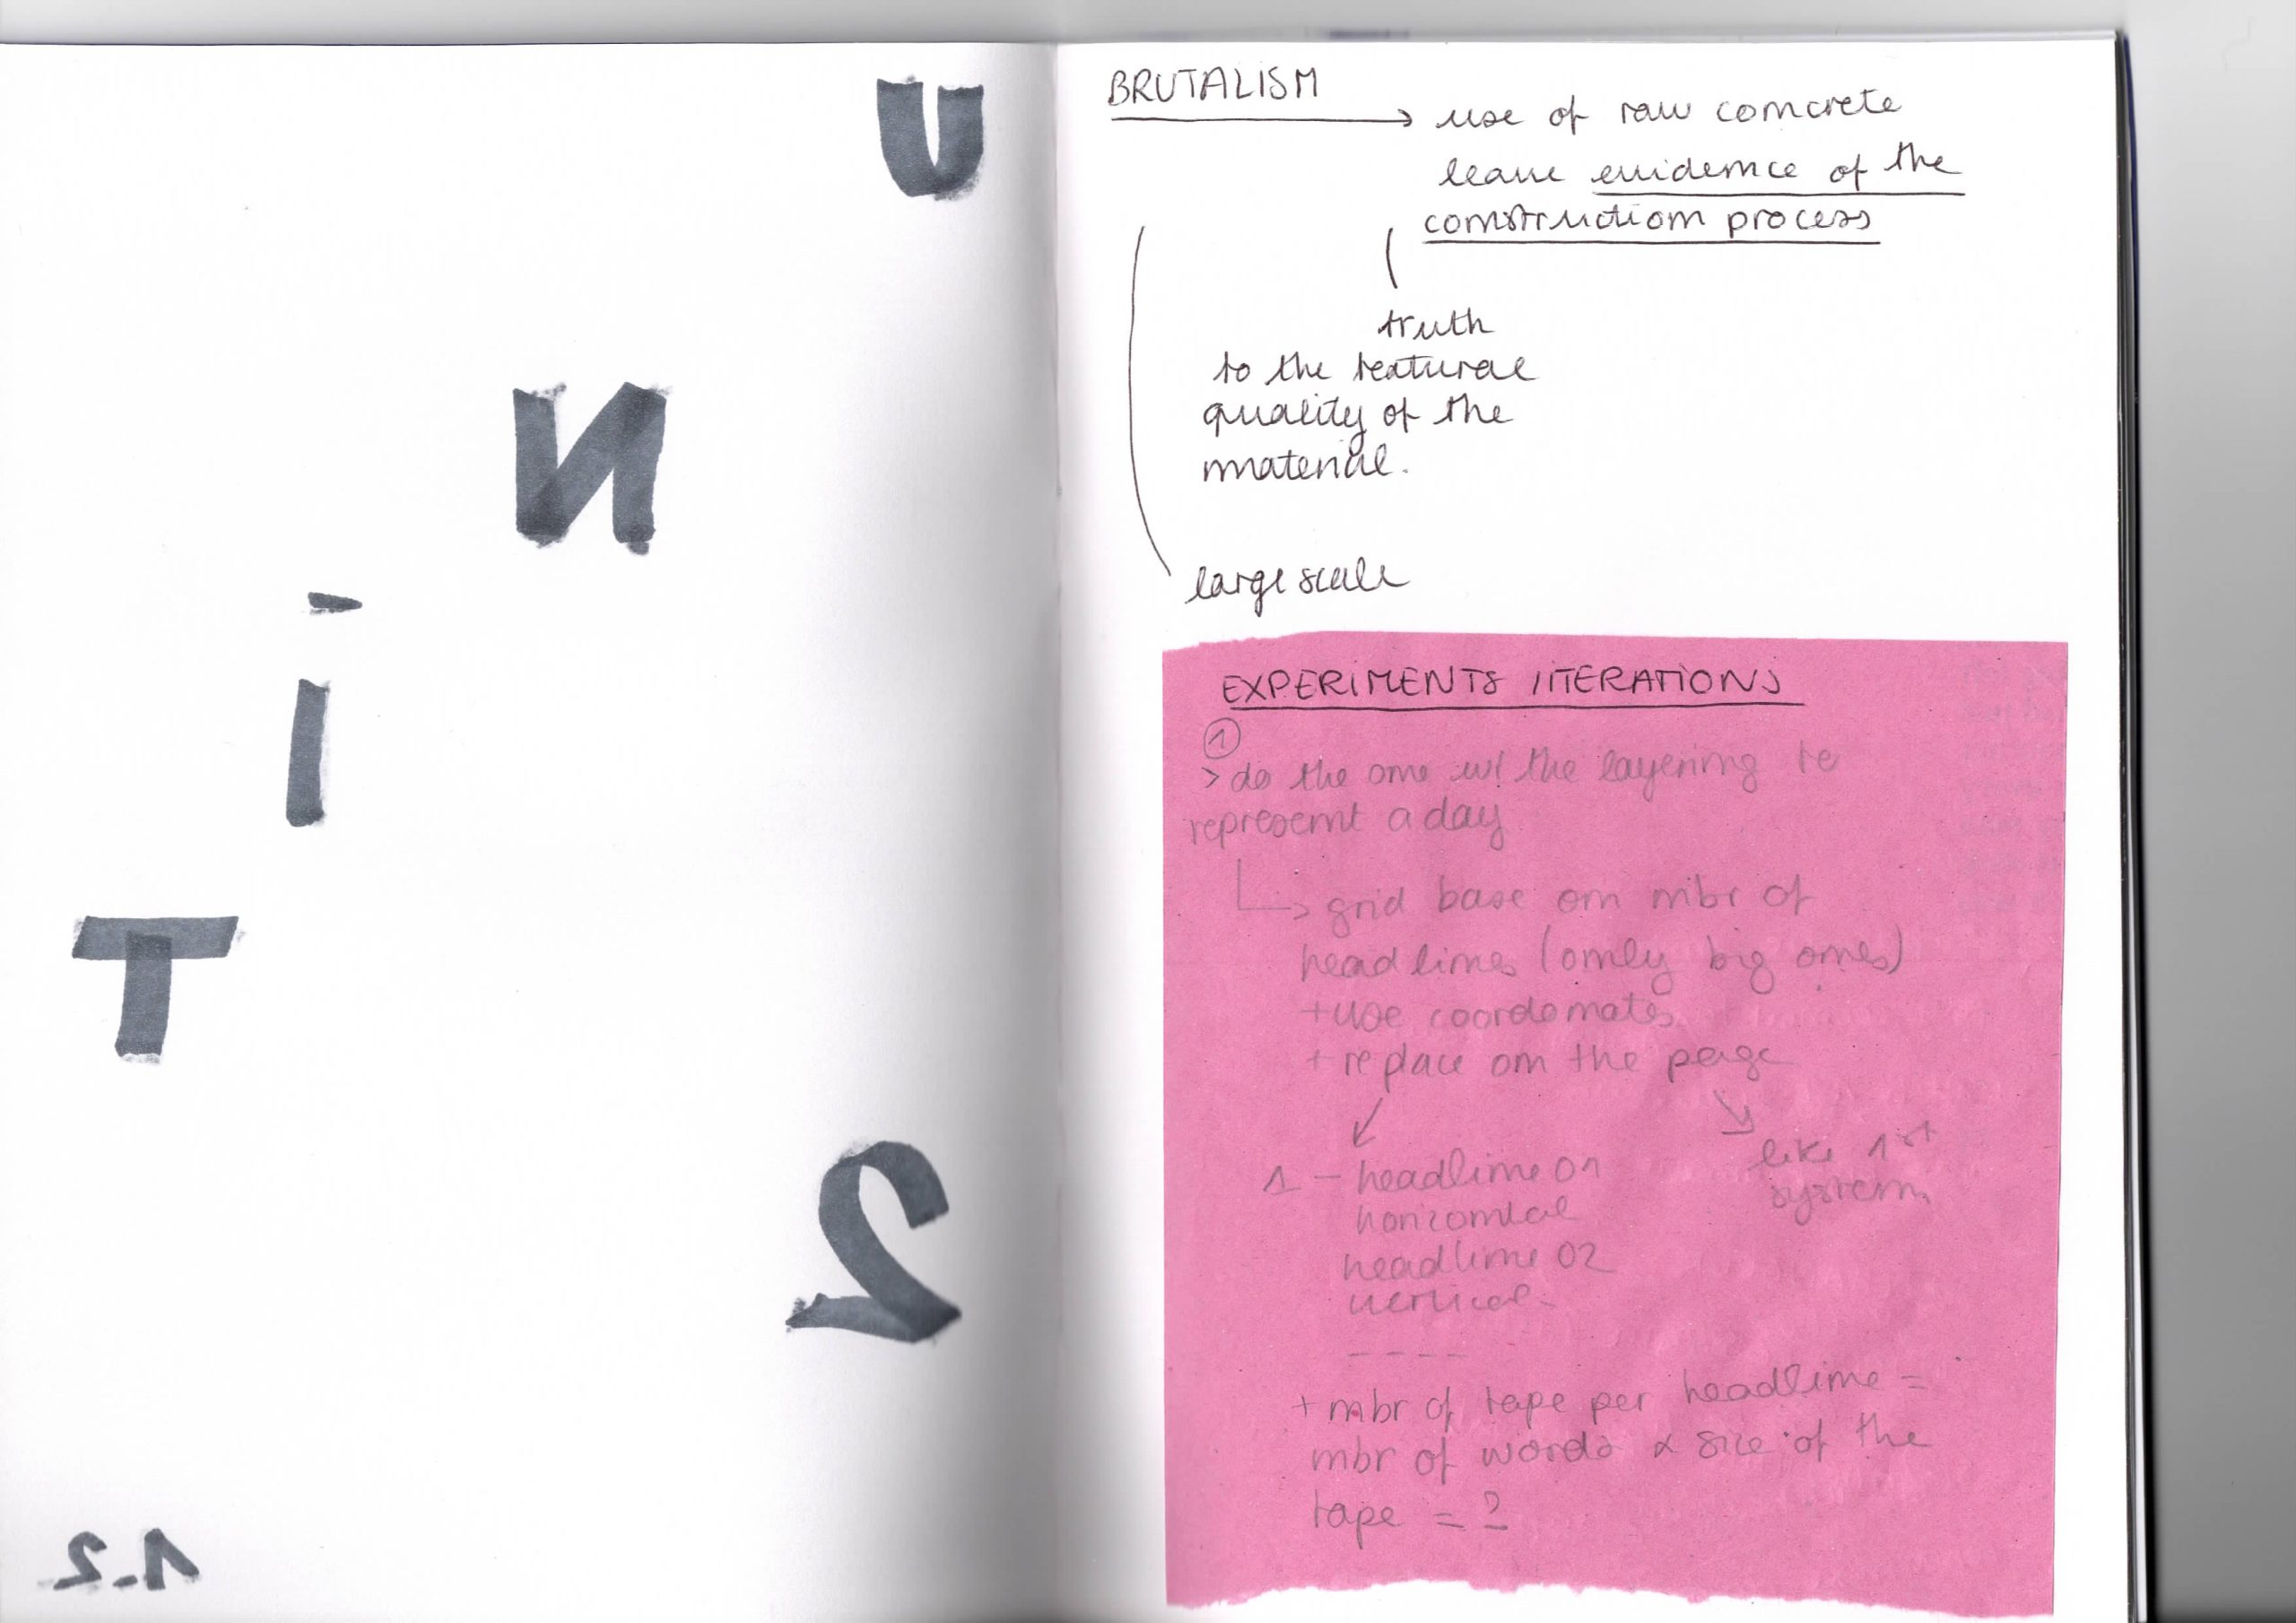 U
N
I
T
2
1_2
BRUTALISM
→ use of raw concrete
leave evidence of the
construction process
truth
to the textural
quality of the
material.
large scale
EXPERIMENTS / ITERATIONS
①
> do the one w/ the layering te
represent a day
→ grid base on nbr of
headlines (only big ones)
+ use coordonates
+ replace on the page
↙ ↘
like 1st
system
1 – headline 01
horizontal
headline 02
vertical
----
+ nbr of tape per headline =
nbr of words & size of the
tape = ?